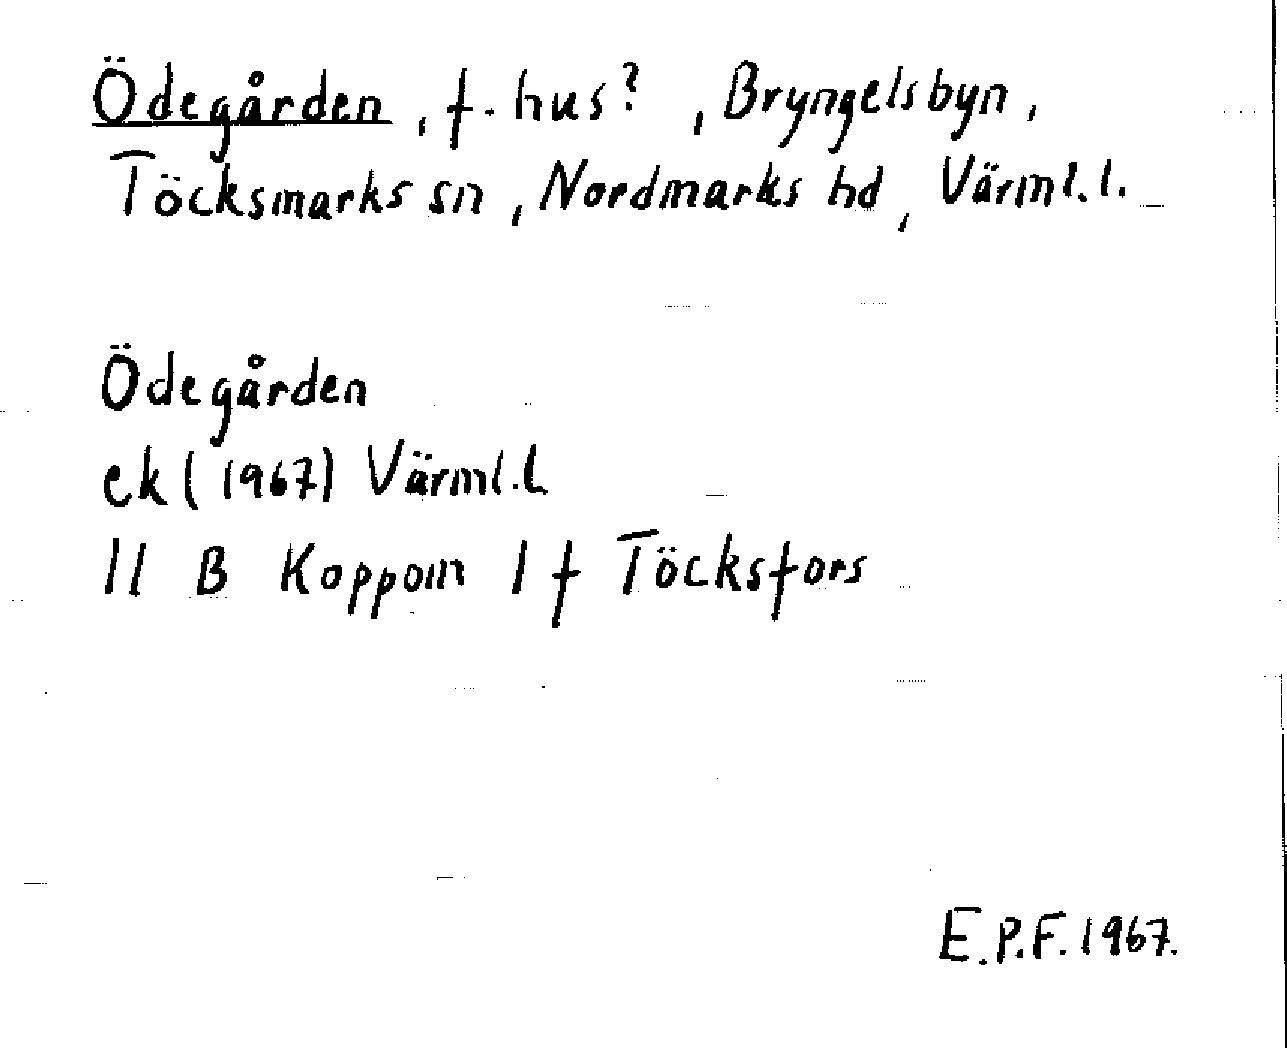 Ödegården, f. hus?, Bryngelsbyn,
Töcksmarks sn, Nordmarks hd, Värml. l.
Ödegården
ek (1967) Värml. l
11 B Koppom 1 f Töcksfors
E.P.F. 1967.